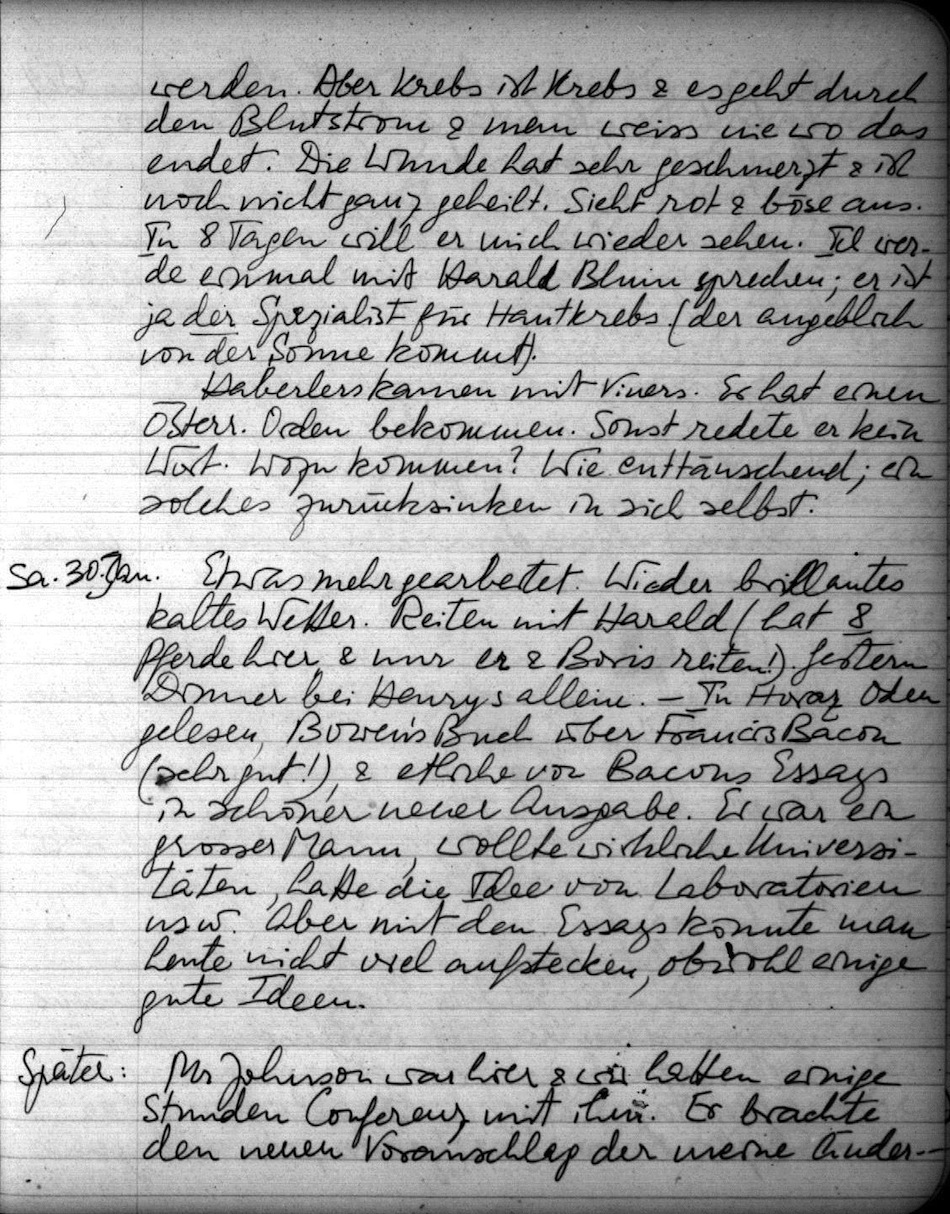 werden. Aber Krebs ist Krebs & es geht durch
den Blutstrom & man weiss nie wo das
endet. Die Wunde hat sehr geschmerzt & ist
noch nicht ganz geheilt. Sieht rot & böse aus.
In 8 Tagen will er mich wieder sehen. Ich wer-
de einmal mit Harald Blum sprechen; er ist
ja der Spezialist für Hautkrebs (der angeblich
von der Sonne kommt).
Haberlers kamen mit Viners. Er hat einen
Österr. Orden bekommen. Sonst redete er kein
Wort. Wozu kommen? Wie enttäuschend; ein
solches zurücksinken in sich selbst.
Sa. 30. Jan. Etwas mehr gearbeitet. Wieder brillantes
kaltes Wetter. Reiten mit Harald (hat 8
Pferde hier & nur er & Boris reiten!). Gestern
Dinner bei Henrys allein. – In Horaz Oden
gelesen, Bowen's Buch über Francis Bacon
(sehr gut!), & etliche von Bacons Essays
in schöner neuer Ausgabe. Er war ein
grosser Mann, wollte wirkliche Universi-
täten, hatte die Idee von Laboratorien
usw. Aber mit den Essays könnte man
heute nicht viel aufstecken, obwohl einige
gute Ideen.
Später: Mr Johnson war hier & wir hatten einige
Stunden Conferenz mit ihm. Er brachte
den neuen Voranschlag der meine Ander-